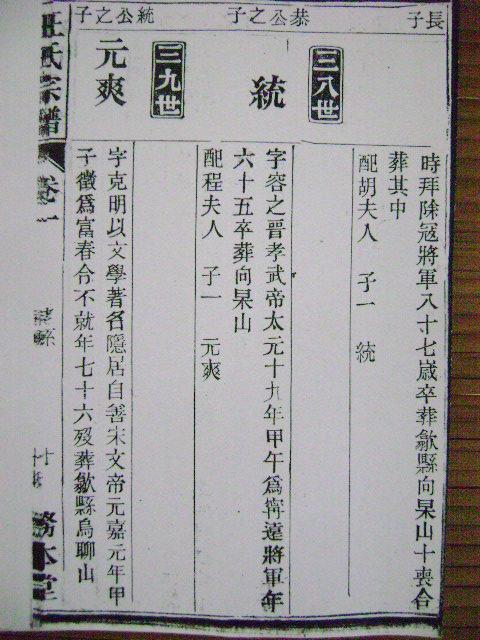 長子
時拜除寇將軍八十七歲卒葬歙縣向杲山十喪合
葬其中
配胡夫人 子一 統
三八世
恭公之子
統
字容之晉孝武帝太元十九年甲午為寧遠將軍年
六十五卒葬向杲山
配程夫人 子一 元爽
三九世
統公之子
元爽
字克明以文學著名隱居自善宋文帝元嘉元年甲
子徵為富春令不就年七十六歿葬歙縣烏聊山
汪氏宗譜
卷一
務本堂